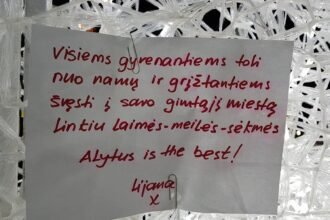 Visiems gyvenantiems toli
nuo namų ir grįžtantiems
švęsti į savo gimtąjį miestą
linkiu laimės-meilės-sėkmės
Alytus is the best!
Lijana
x